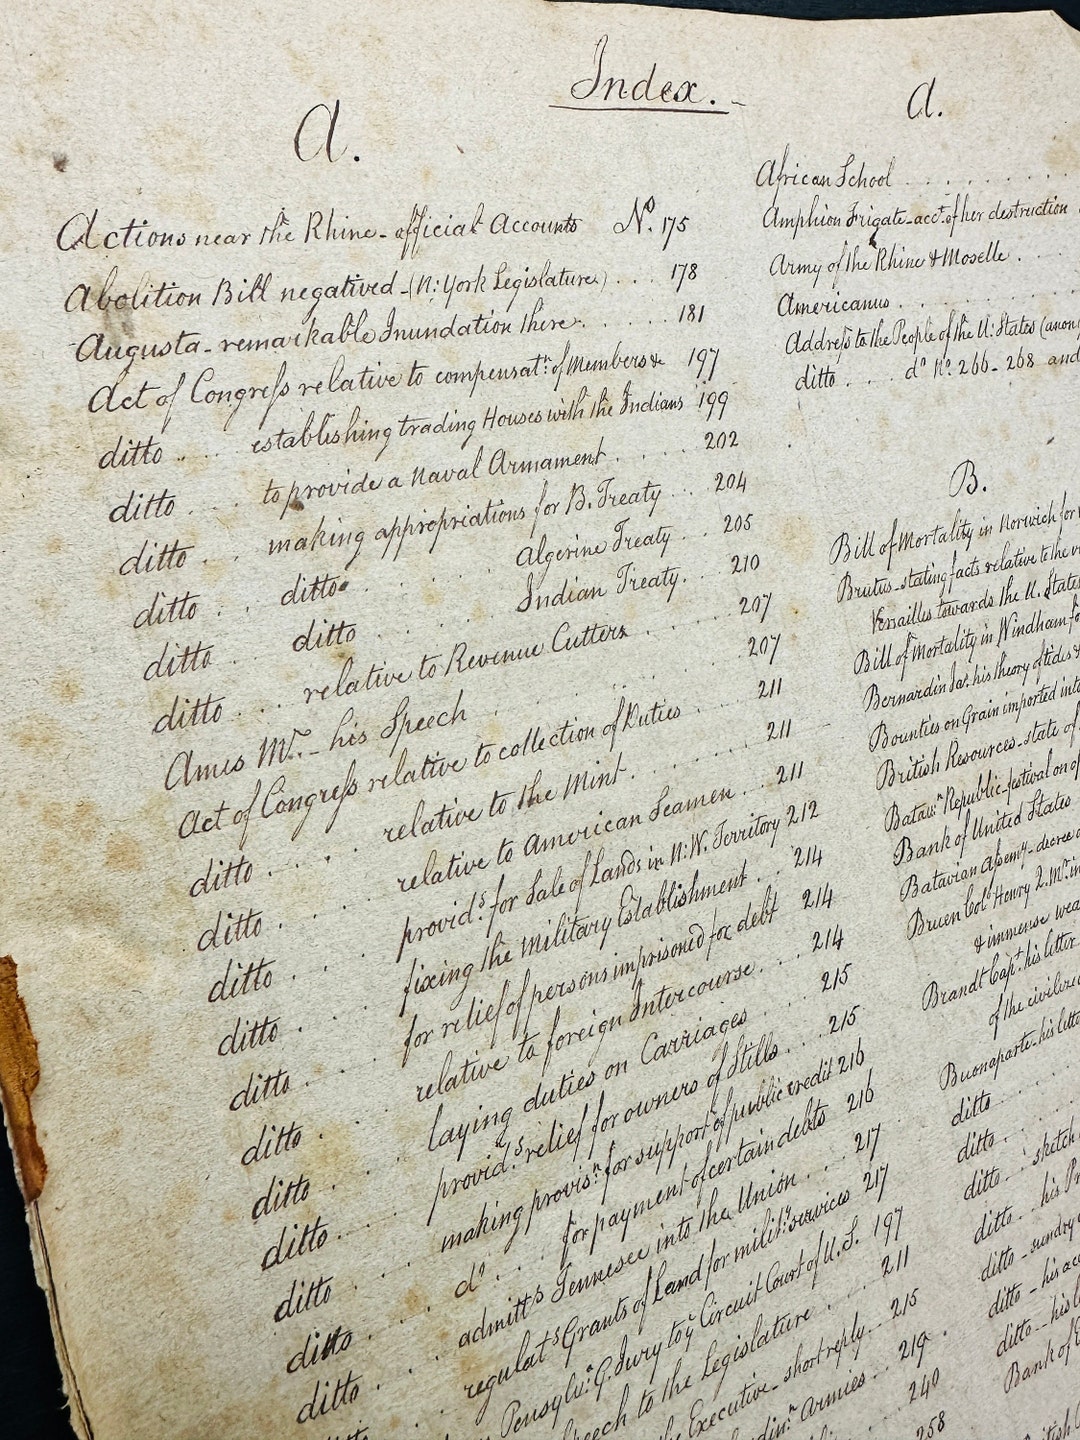 Index.
A.
Actions near the Rhine - official Accounts No. 175
Abolition Bill negatived - (N: York Legislature) . . . 178
Augusta - remarkable Inundation there . . . . . . 181
Act of Congress relative to compensatn: of Members &c 197
ditto . . . . establishing trading Houses with the Indians 199
ditto . . . . to provide a Naval Armament . . . . . 202
ditto . . . making appropriations for B. Treaty . . . 204
ditto . . . ditto . . . . . . Algerine Treaty . . 205
ditto . . . ditto . . . . . Indian Treaty . . . 210
ditto . . . relative to Revenue Cutters . . . . . . 207
Ames Mr. - his Speech . . . . . . . 207
Act of Congress relative to collection of Duties . . . . 211
ditto . . . . relative to the Mint . . . . . . . 211
ditto . . . . relative to American Seamen . . . 211
ditto . . . . provids. for Sale of Lands in N: W. Territory 212
ditto . . . . fixing the Military Establishment . . . 214
ditto . . . . for relief of persons imprisoned for debt 214
ditto . . . . relative to foreign Intercourse . . . . 214
ditto . . . . laying duties on Carriages . . . . . 215
ditto . . . . provids. relief for owners of Stills . . . . 215
ditto . . . . making provisn. for support of public credit 216
ditto . . . . do. . . . for payment of certain debts 216
ditto . . . . admitts Tennesee into the Union . . . . 217
ditto . . . . regulats Grants of Land for mility: services 217
Pensylva. G. Jury to ye Circuit Court of U. S. 197
Speech to the Legislature . . . . 211
the Executive - short reply . . 215
Armies . . . . 219
240
258
A.
African School . . . . . . .
Amphion Frigate - acct. of her destruction
Army of the Rhine & Moselle . . .
Americanus . . . . . . .
Address to the People of the U: States (anon
ditto . . . . do No. 266 - 268 and
B.
Bill of Mortality in Norwich for
Brutus - stating facts relative to the
Versailles towards the U. States
Bill of Mortality in Windham fo
Bernardin Ja. his theory of tides &
Bounties on Grain imported into
British Resources - state of
Batavn. Republic - festival on
Bank of United States
Batavian Assemy - decree
Bruen Colo. Henry L. Mr. in
& immense wea
Brandt Capt. his letter
of the civilized
Buonaparte - his lette
ditto . . . .
ditto . . . .
ditto . . sketch
ditto . . his Pr
ditto - sundry
ditto - his acc
ditto - his l
Bank of E